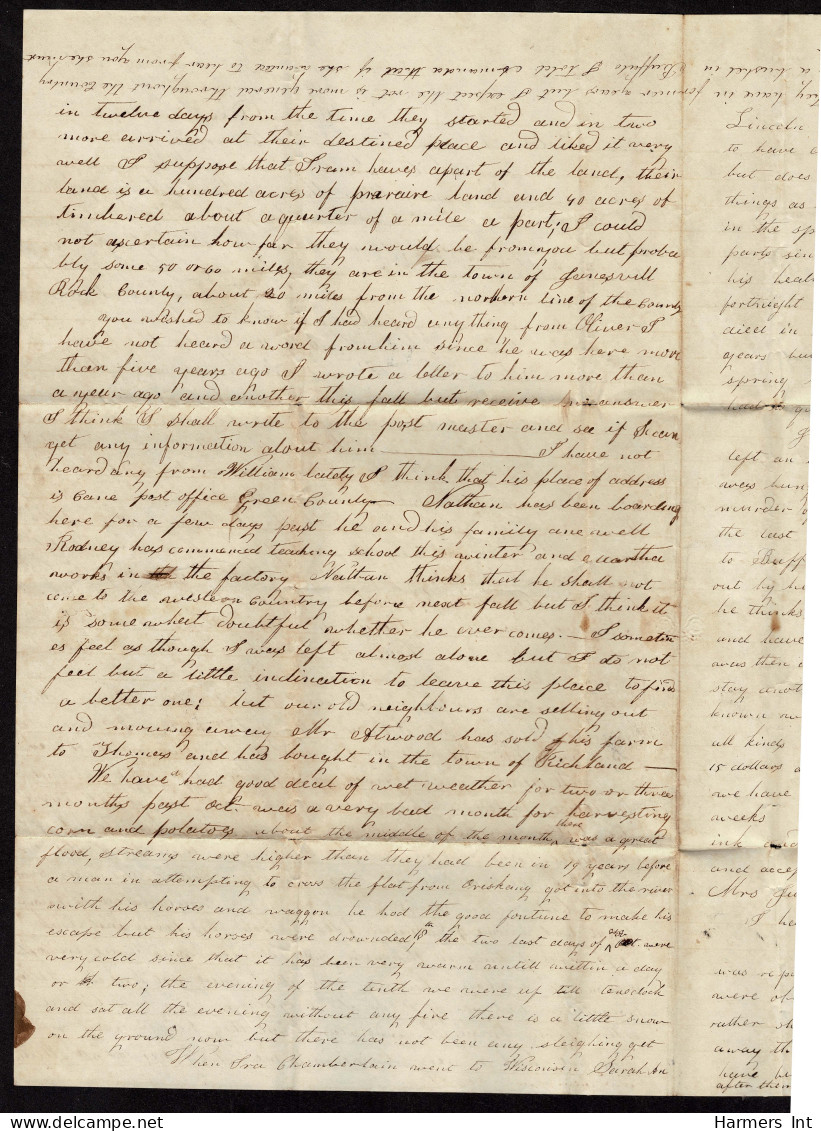 they have in former years but I expect the rot is more general throughout the Country
a bushel in Buffulo I told Amanda that if she wanted to hear from you she must
in twelve days from the time they started and in two
more arrived at their destined place and liked it very
well I suppose that Iram haves apart of the land, their
land is a hundred acres of preraire land and 40 acres of
timbered about a quarter of a mile a part; I could
not ascertain how far they would be from you but proba
bly some 50 or 60 miles, they are in the town of Janesvill
Rock County, about 20 miles from the northern line of the County
You wished to know if I had heard any thing from Oliver I
have not heard a word from him since he was here more
than five years ago I wrote a letter to him more than
a year ago and another this fall but receive no answer
I think I shall write to the post master and see if I can
get any information about him — I have not
heard any from William lately I think that his place of address
is Cane post office Green County — Nathan has been boarding
here for a few days past he and his family are well
Rodney has commenced teaching school this winter and Martha
works in the factory Nathan thinks that he shall not
come to the western Country before next fall but I think it
is somewhat doubtful whether he ever comes — I sometim
es feel as though I was left almost alone but I do not
feel but a little inclination to leave this place to find
a better one; but our old neighbours are selling out
and moving away Mr Atwood has sold his farm
to Thomas and has bought in the town of Richland —
We have had good deal of wet weather for two or three
months past Oct. was a very bad month for harvesting
corn and potatoes about the middle of the month there was a great
flood, streams were higher than they had been in 19 years before
a man in attempting to cross the flat from Oriskany got into the river
with his horses and waggon he had the good fortune to make his
escape but his horses were drowned, the two last days of were
very cold since that it has been very warm untill within a day
or two; the evening of the tenth we were up till ten oclock
and sat all the evening without any fire there is a little snow
on the ground now but there has not been any sleighing yet
When Ira Chamberlain went to Wisconsin Sarah An
Lincoln
to have
but does
things as
in the sp
parts sin
his heal
fortnight
died in
years bu
spring
had
left an
was hun
murder
the last
to Supp
out by h
he thinks
and have
was then
stay anot
known
all kinds
15 dollars
we have
weeks
ink and
and accep
Mrs Ju
I ha
was rep
were of
rather s
away th
have be
after them
Harmers Int